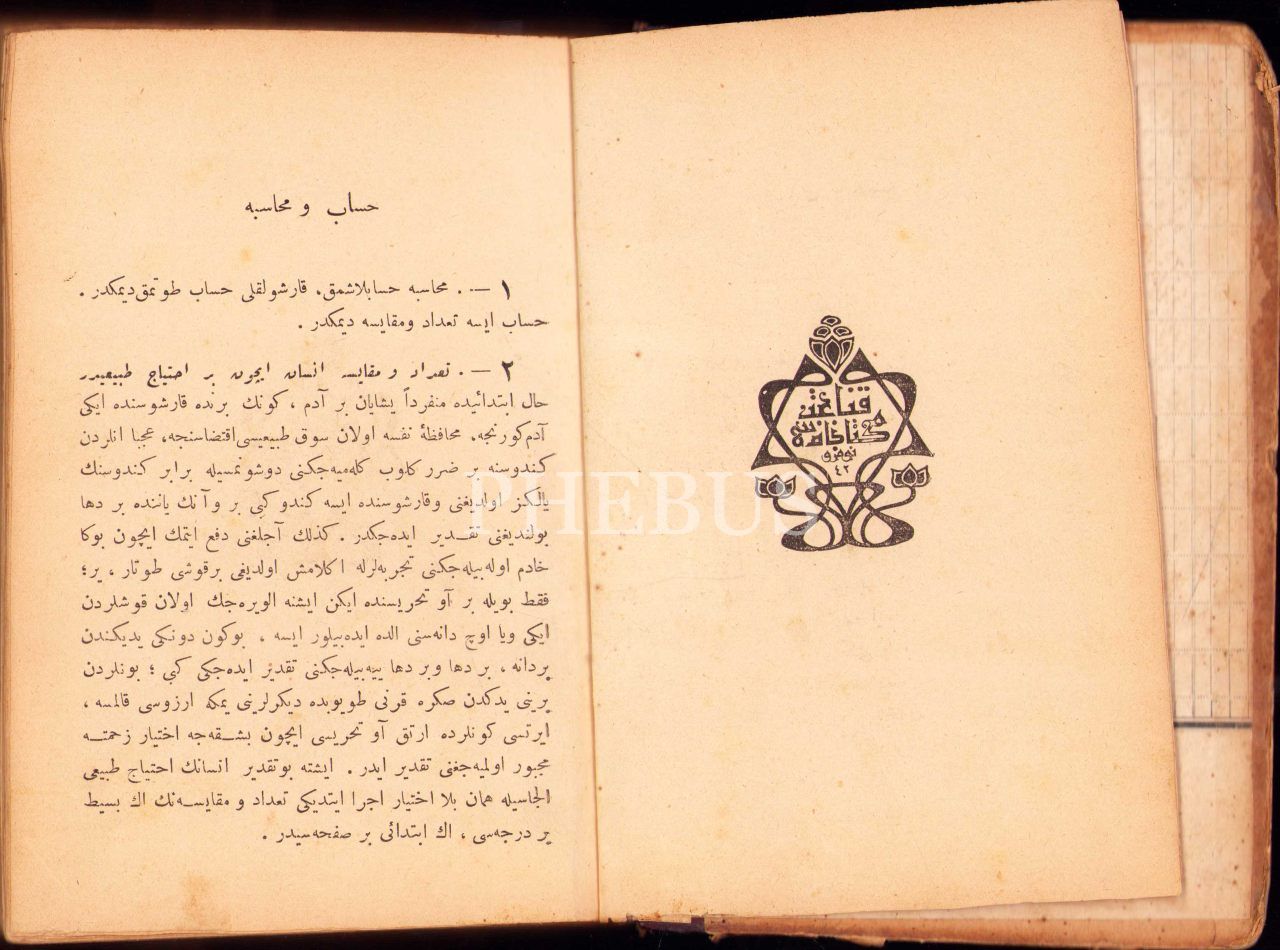 قناعت
كتابخانه سی
نومرو
٤٢
حساب و محاسبه
١ — . محاسبه حسابلاشمق، قارشولقلی حساب طوتمق ديمكدر .
حساب ايسه تعداد ومقايسه ديمكدر .
٢ — . تعداد و مقايسه انسان ايچون بر احتياج طبيعيدر
حال ابتدائيده منفرداً يشايان بر آدم ، كونك برنده قارشوسنده ايكی
آدم كورنجه، محافظۀ نفسه اولان سوق طبيعيسی اقتضاسنجه، عجبا انلردن
كندوسنه بر ضرر كلوب كله ميه جكنی دوشونمسيله برابر كندوسنك
يالكز اولديغنی وقارشوسنده ايسه كندو كبی بر وآنك ياننده بر دها
بولنديغنی تقدير ايده جكدر . كذلك آجلغنی دفع ايتمك ايچون بوكا
خادم اوله بيله جكنی تجربه لرله اكلامش اولديغی برقوشی طوتار ، ير؛
فقط بويله بر آو تحريسنده ايكن ايشنه الويره جك اولان قوشلردن
ايكی ويا اوچ دانه سنی الده ايده بيلور ايسه ، بوكون دونكی يديكندن
بردانه ، بر دها وبر دها ييه بيله جكنی تقدير ايده جكی كبی ؛ بونلردن
برينی يدكدن صكره قرنی طويوبده ديكرلرينی يمكه ارزوسی قالمسه ،
ايرتسی كونلرده ارتق آو تحريسی ايچون بشقه جه اختيار زحمته
مجبور اولميه جغنی تقدير ايدر . ايشته بوتقدير انسانك احتياج طبيعی
الجاسيله همان بلا اختيار اجرا ايتديكی تعداد و مقايسه نك اك بسيط
بر درجه سی ، اك ابتدائی بر صفحه سيدر .
PHEBUS